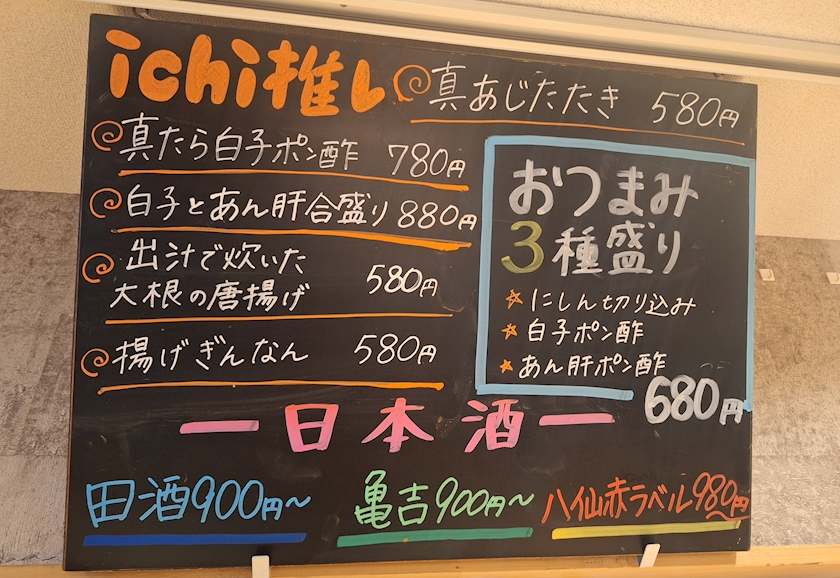 ichi推し
真あじたたき 580円
真たら白子ポン酢 780円
白子とあん肝合盛り 880円
出汁で炊いた
大根の唐揚げ 580円
揚げぎんなん 580円
おつまみ
3種盛り
☆にしん切り込み
☆白子ポン酢
☆あん肝ポン酢
680円
ー日本酒ー
田酒900円〜
亀吉900円〜
八仙赤ラベル980円